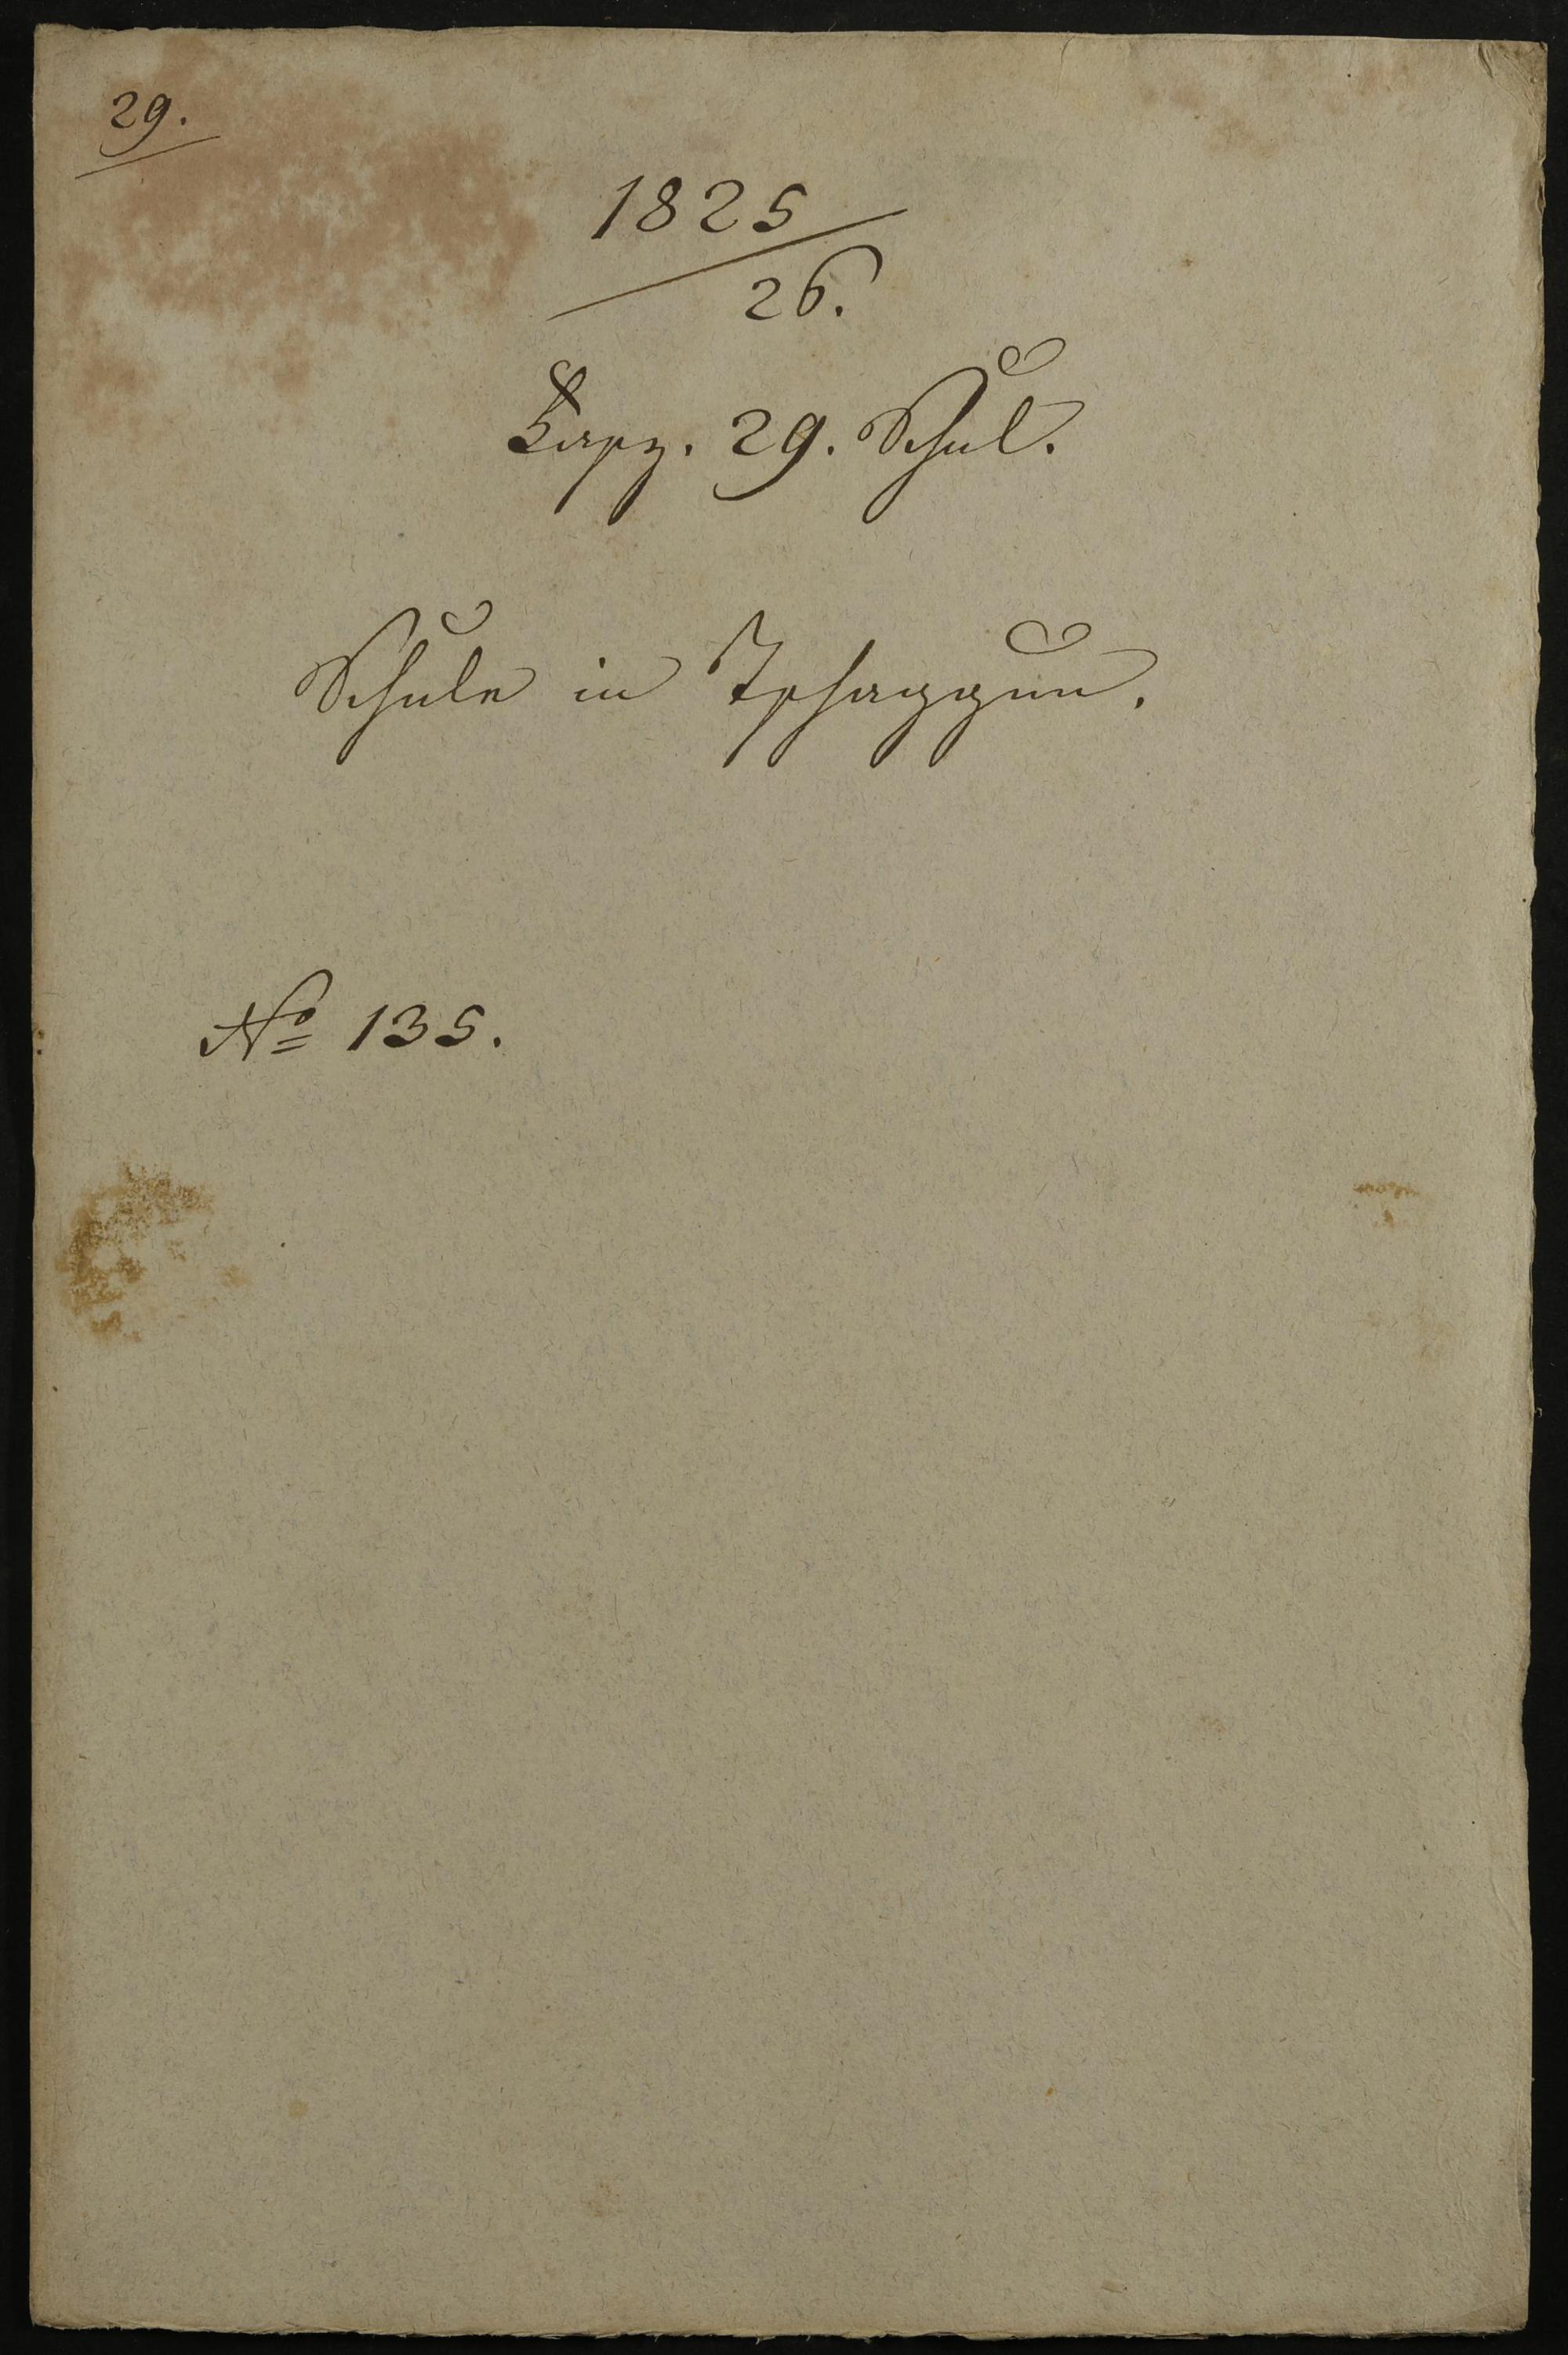 29.
1825
26.
Fasz. 29. Schul.
Schule in Tschaggun.
Nº 135.